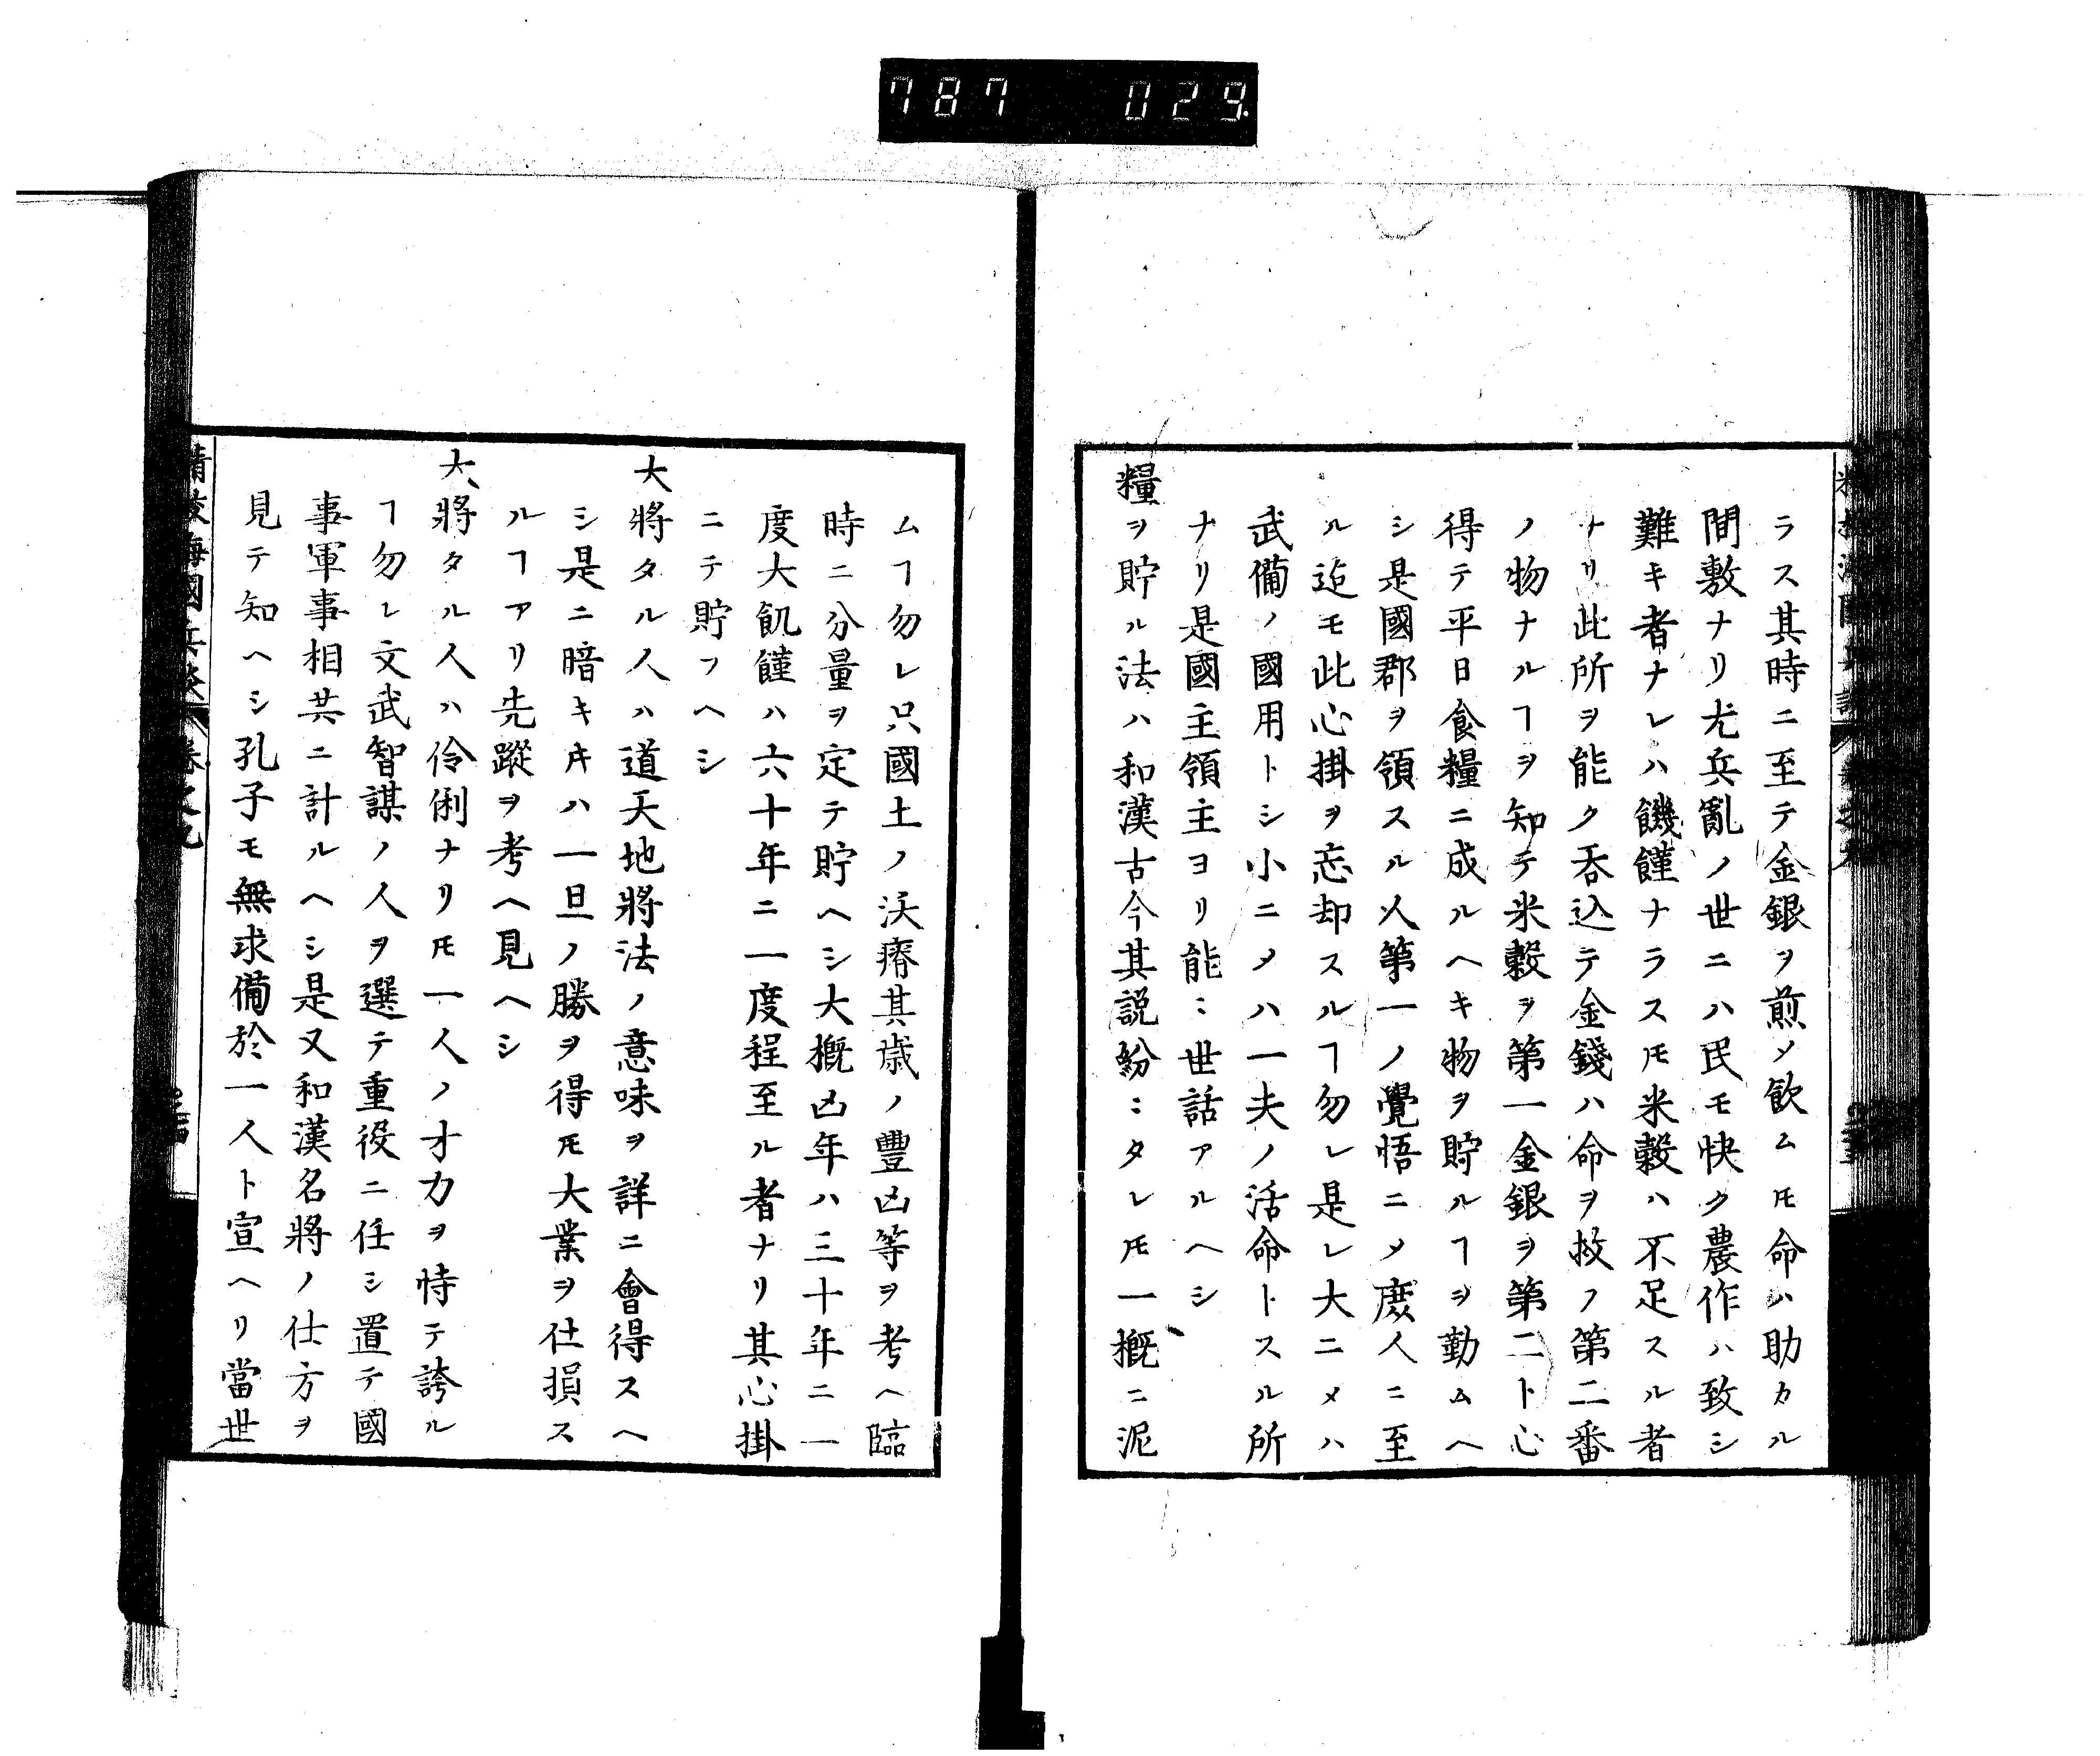 787 029
ラス其時ニ至テ金銀ヲ煎メ飲ムモ命ハ助カル
間敷ナリ尤兵亂ノ世ニハ民モ快ク農作ハ致シ
難キ者ナレハ饑饉ナラスモ米穀ハ不足スル者
ナリ此所ヲ能ク呑込テ金錢ハ命ヲ救フ第二番
ノ物ナルヿヲ知テ米穀ヲ第一金銀ヲ第二ト心
得テ平日食糧ニ成ルヘキ物ヲ貯ルヿヲ勤ムヘ
シ是國郡ヲ領スル人第一ノ覺悟ニメ庶人ニ至
ル迄モ此心掛ヲ忘却スルヿ勿レ是レ大ニメハ
武備ノ國用トシ小ニメハ一夫ノ活命トスル所
ナリ是國主領主ヨリ能ミ世話アルヘシ
糧ヲ貯ル法ハ和漢古今其説紛ミタレモ一概ニ泥
ムヿ勿レ只國土ノ沃瘠其歳ノ豐凶等ヲ考ヘ臨
時ニ分量ヲ定テ貯ヘシ大概凶年ハ三十年ニ一
度大飢饉ハ六十年ニ一度程至ル者ナリ其心掛
ニテ貯フヘシ
大將タル人ハ道天地將法ノ意味ヲ詳ニ會得スヘ
シ是ニ暗キ𪜈ハ一旦ノ勝ヲ得𪜈大業ヲ仕損ス
ルヿアリ先蹤ヲ考ヘ見ヘシ
大將タル人ハ伶俐ナリ𪜈一人ノ才力ヲ恃テ誇ル
ヿ勿レ文武智謀ノ人ヲ選テ重役ニ任シ置テ國
事軍事相共ニ計ルヘシ是又和漢名將ノ仕方ヲ
見テ知ヘシ孔子モ無求備於一人ト宣ヘリ當世
精校海國兵談 卷之九